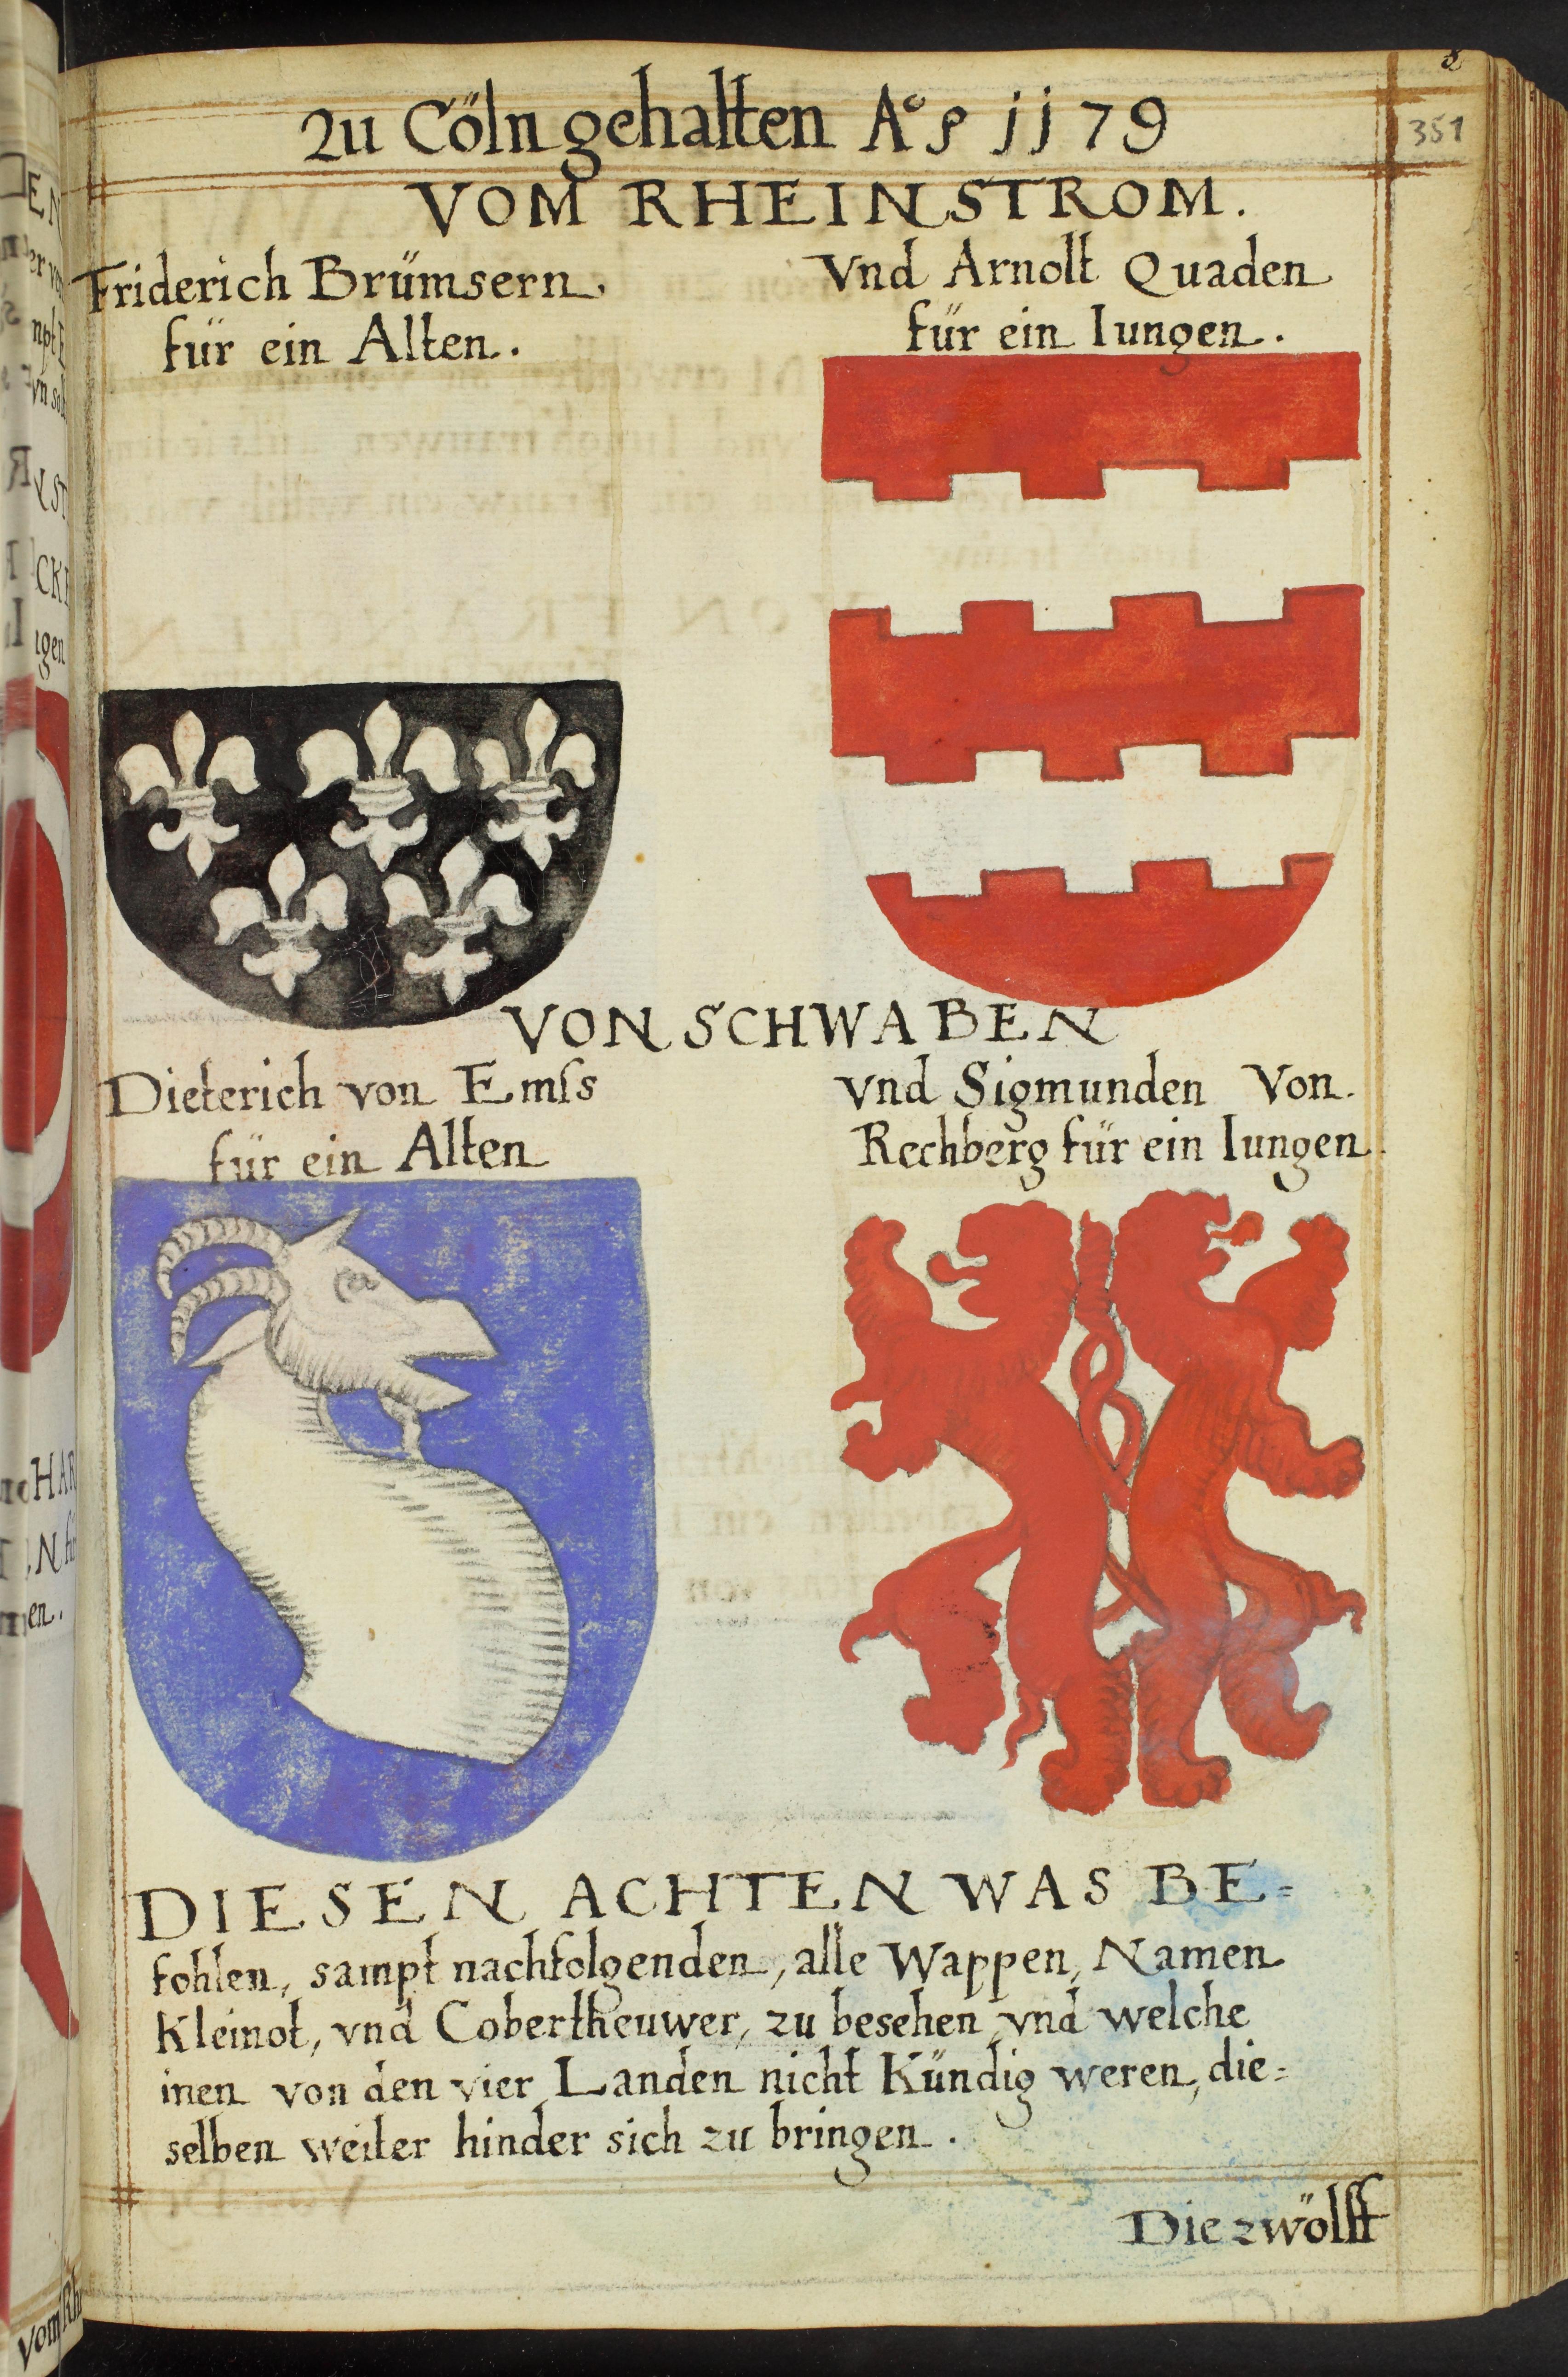 351
Zu Cöln gehalten Aº 1179
VOM RHEINSTROM.
Friderich Brümsern.
für ein Alten.
Vnd Arnolt Quaden
für ein Iungen.
VON SCHWABEN
Dieterich von Emſs
für ein Alten
vnd Sigmunden Von.
Rechberg für ein Iungen.
DIESEN ACHTEN WAS BE=
fohlen, sampt nachfolgenden, alle Wappen, Namen
Kleinot, vnd Cobertheuwer, zu besehen, vnd welche
inen von den vier Landen nicht Kündig weren, die=
selben weiter hinder sich zu bringen.
Die zwölff